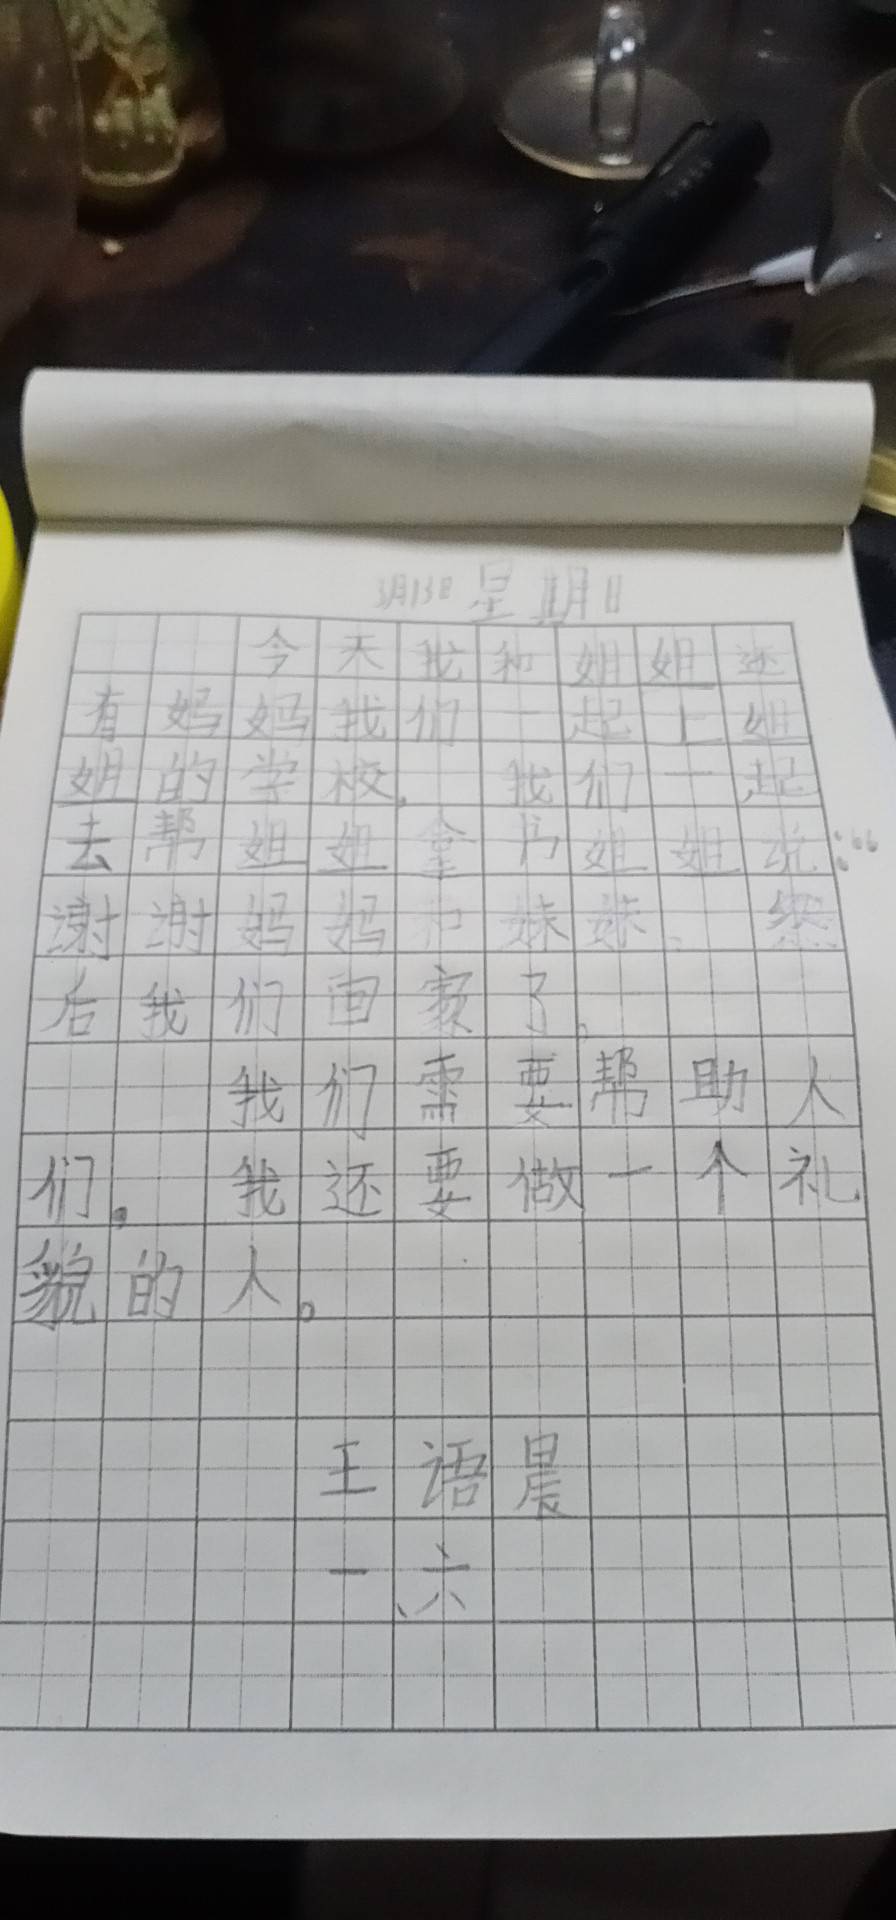 3月13日 星期日
今天我和姐姐还
有妈妈我们一起上姐
姐的学校，我们一起
去帮姐姐拿书姐姐说：“
谢谢妈妈和妹妹、然
后我们回家了。
我们需要帮助人
们。我还要做一个礼
貌的人。
王语晨
一、六